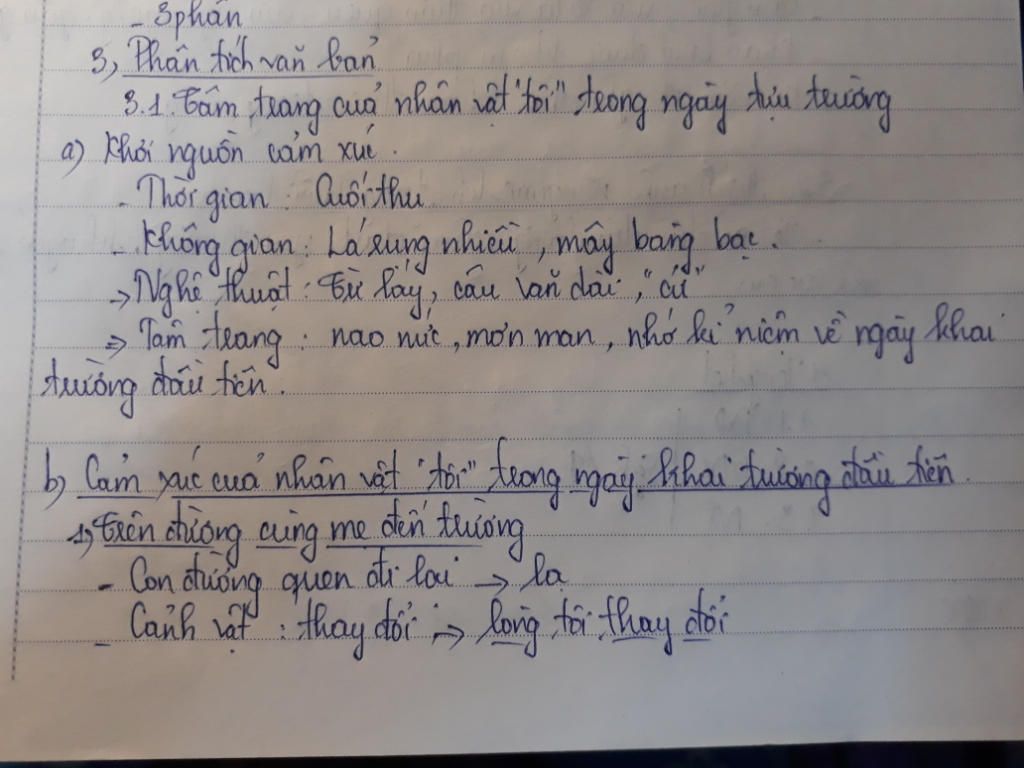 - 3 phần
3, Phân tích văn bản
3.1. Tâm trạng của nhân vật "tôi" trong ngày tựu trường
a) Khơi nguồn cảm xúc.
- Thời gian: Cuối thu
- Không gian: Lá rụng nhiều, mây bàng bạc.
→ Nghệ thuật: Từ láy, câu văn dài, "cứ"
⇒ Tâm trạng: nao nức, mơn man, nhớ kỉ niệm về ngày khai
trường đầu tiên.
b) Cảm xúc của nhân vật "tôi" trong ngày khai trường đầu tiên.
1, Trên đường cùng mẹ đến trường
- Con đường quen đi lại → lạ
- Cảnh vật: thay đổi → lòng tôi thay đổi